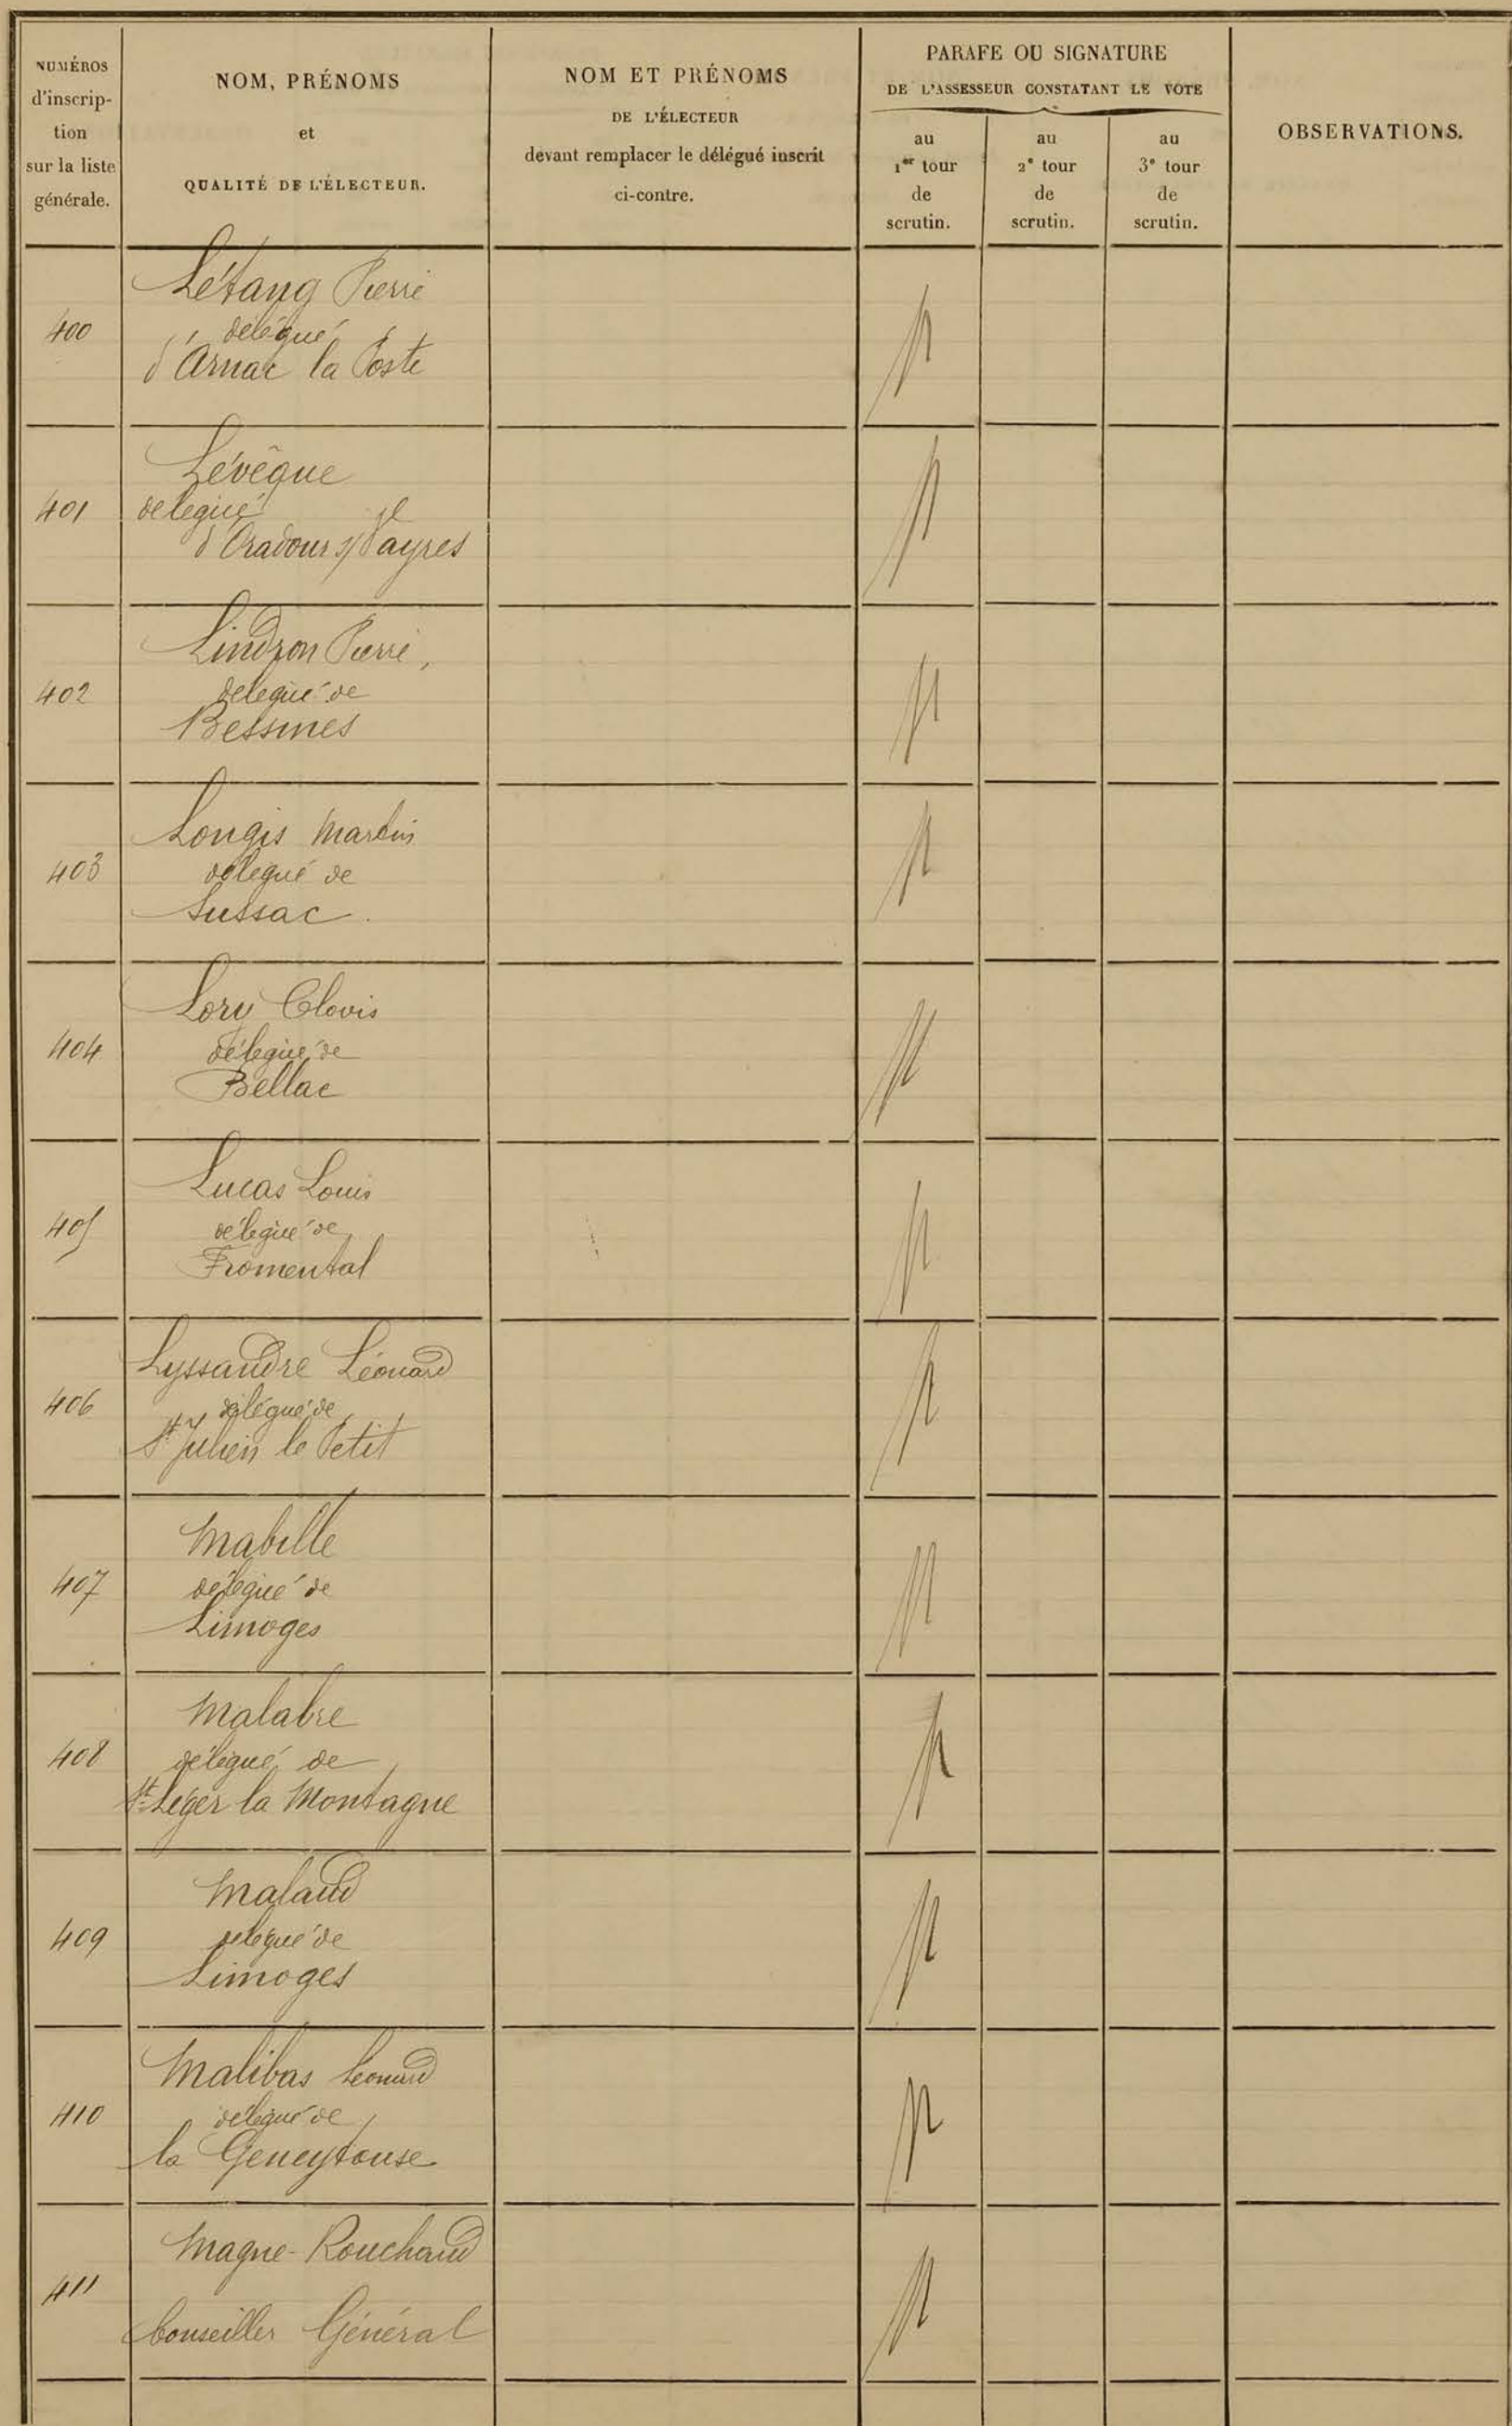 NUMÉROS
d'inscrip-
tion
sur la liste
générale.
NOM, PRÉNOMS
et
QUALITÉ DE L'ÉLECTEUR.
NOM ET PRÉNOMS
DE L'ÉLECTEUR
devant remplacer le délégué inscrit
ci-contre.
PARAFE OU SIGNATURE
DE L'ASSESSEUR CONSTATANT LE VOTE
au
1er tour
de
scrutin.
au
2e tour
de
scrutin.
au
3e tour
de
scrutin.
OBSERVATIONS.
400
Létang Pierre
délégué
d'Arnac la Poste
401
Lévêque
délégué
d'Oradour s/ Vayres
402
Lindron Pierre,
délégué de
Bessines
403
Longis Martin
délégué de
Sussac.
404
Lory Clovis
délégué de
Bellac
405
Lucas Louis
délégué de
Fromental
406
Lyssandre Léonard
délégué de
St Julien le Petit
407
Mabille
délégué de
Limoges
408
Malabre
délégué de
St Léger la Montagne
409
Malaud
délégué de
Limoges
410
Malibas Léonard
délégué de
la Geneytouse
411
Magne-Rouchaud
Conseiller Général